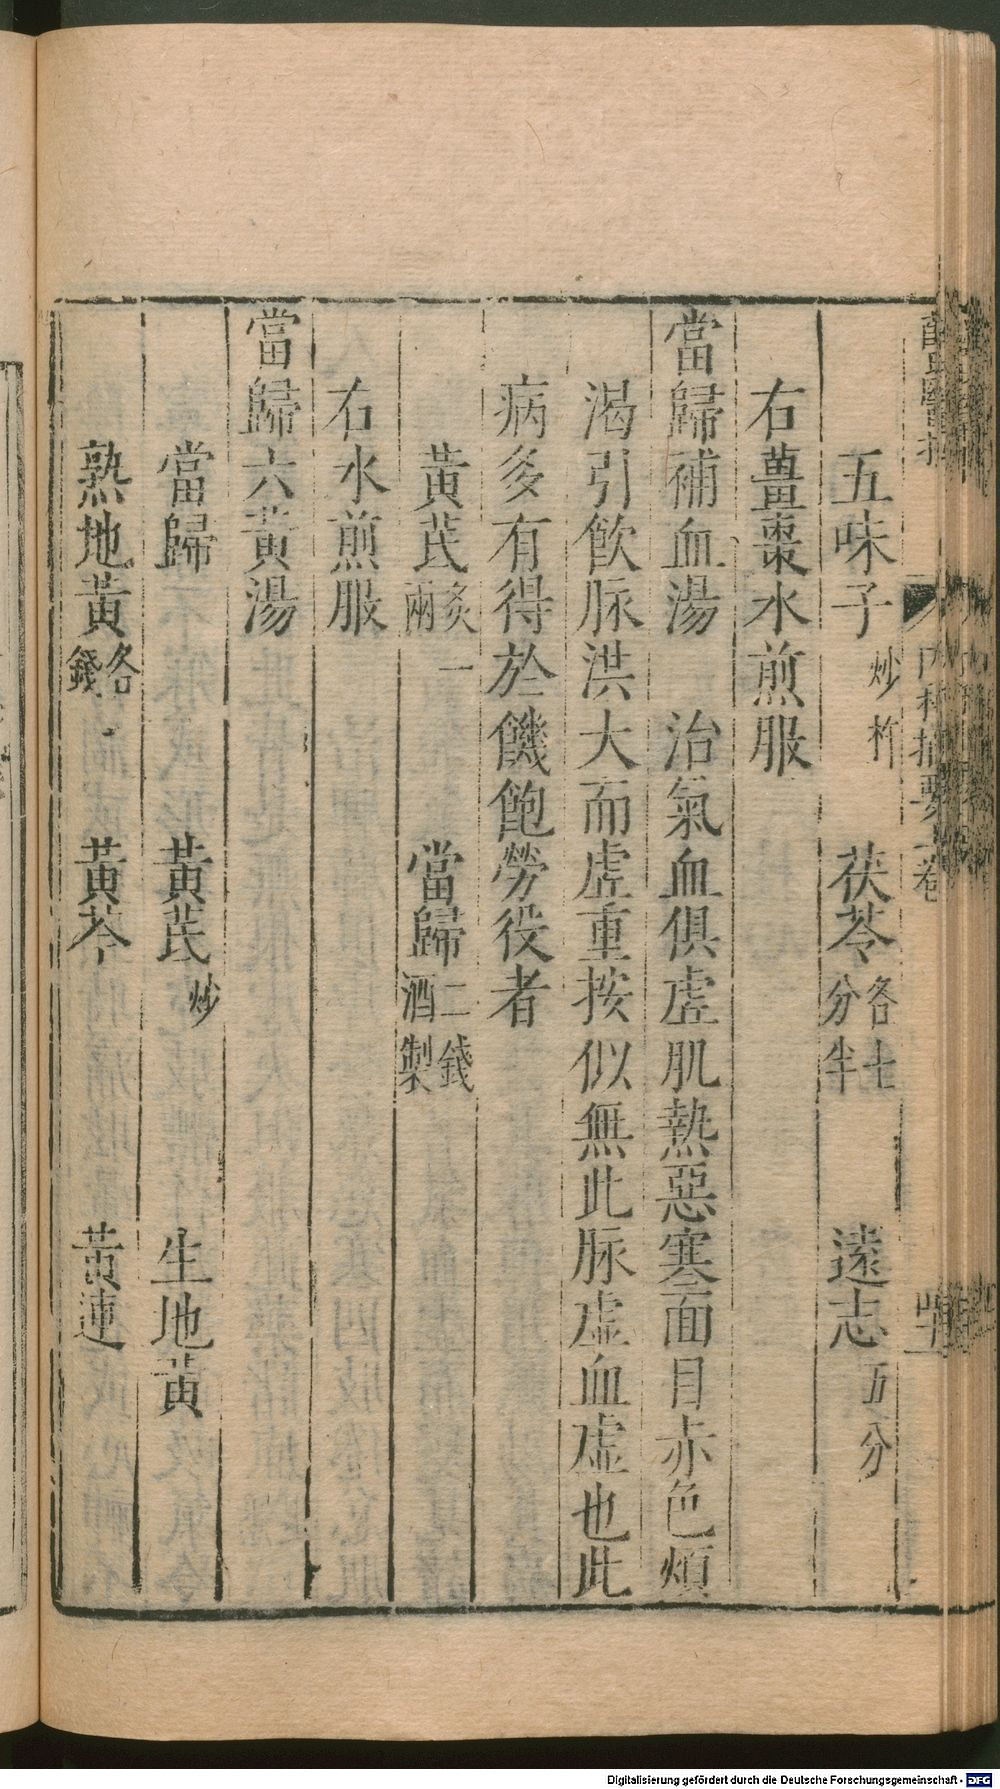 五味子炒杵 茯苓各七分半 遠志五分
右薑棗水煎服
當歸補血湯 治氣血俱虛肌熱惡寒面目赤色煩
渴引飲脉洪大而虛重按似無此脉虛血虛也此
病多有得於饑飽勞役者
黃芪炙一兩 當歸二錢酒製
右水煎服
當歸六黃湯
當歸 黃芪炒 生地黃
熟地黃各錢 黃芩 黃連
Digitalisierung gefördert durch die Deutsche Forschungsgemeinschaft - DFG